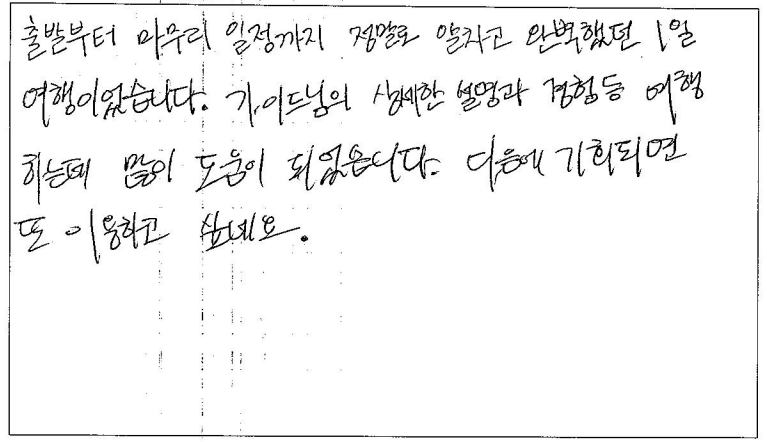 출발부터 마무리 일정까지 정말로 알차고 완벽했던 1일
여행이었습니다. 가이드님의 상세한 설명과 경험등 여행
하는데 많이 도움이 되었습니다. 다음에 기회되면
또 이용하고 싶네요.